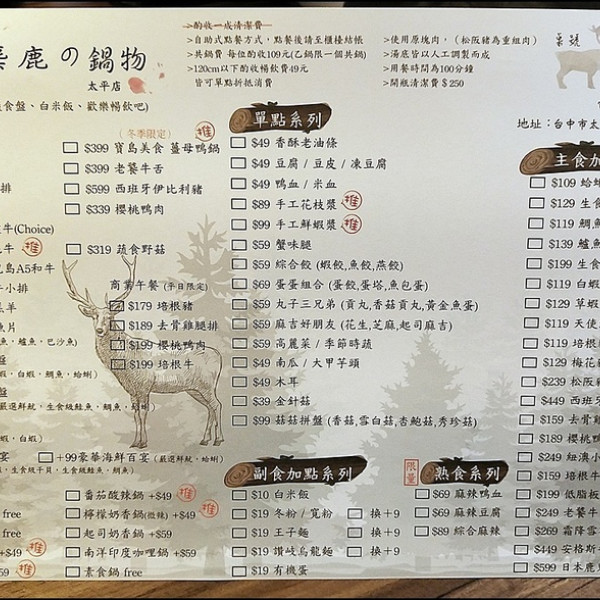 鹿の鍋物
太平店
食盤、白米飯、歡樂暢飲吧)
>酌收一成清潔費
>自助式點餐方式,點餐後請至櫃檯結帳
>共鍋費 每位酌收109元(乙鍋限一個共鍋)
>120cm以下酌收暢飲費49元
皆可單點折抵消費
>使用原塊肉,(松阪豬為重組肉)
>湯底皆以人工調製而成
>用餐時間為100分鐘
>開瓶清潔費$250
地址:台中市太
(冬季限定) 推
$399 寶島美食 薑母鴨鍋
$399 老饕牛舌
$599 西班牙伊比利豬
$339 櫻桃鴨肉
$319 蔬食野菇
排
牛(Choice)
牛 推
島A5和牛
小排
羊
魚片
魚,鱸魚,巴沙魚)
盤
,白蝦,鯛魚,蛤蜊)
盤
,白蝦)
商業午餐 (平日限定)
$179 培根豬
$189 去骨雞腿排
$199 櫻桃鴨肉
$199 培根牛
宴
+99豪華海鮮百宴
番茄酸辣鍋 +$49 推
檸檬奶香鍋(微辣) +$49 推
起司奶香鍋 +$59
南洋印度咖哩鍋 +$59
素食鍋 free
free
free
+$49 推
$59 推
單點系列
$49 香酥老油條
$49 豆腐 / 豆皮 / 凍豆腐
$49 鴨血 / 米血
$89 手工花枝漿 推
$99 手工鮮蝦漿 推
$59 蟹味腿
$59 綜合餃 (蝦餃,魚餃,燕餃)
$69 蛋蛋組合 (蛋餃,蛋塔,魚包蛋)
$59 丸子三兄弟 (貢丸,香菇貢丸,黃金魚蛋)
$59 麻吉好朋友 (花生,芝麻,起司麻吉)
$59 高麗菜 / 季節時蔬
$49 南瓜 / 大甲芋頭
$49 木耳
$39 金針菇
$99 菇菇拼盤 (香菇,雪白菇,杏鮑菇,秀珍菇)
副食加點系列
$10 白米飯
$19 冬粉 / 寬粉 換+9
$19 王子麵 換+9
$19 讚岐烏龍麵 換+9
$19 有機蛋
限量
熟食系列
$69 麻辣鴨血
$69 麻辣豆腐
$89 綜合麻辣
主食加
$109 蛤
$129 生食
$119 鯛
$139 鱸
$199 生食
$119 白蝦
$129 草蝦
$119 天使
$119 培根
$129 梅花
$239 松阪豬
$449 西班牙
$159 去骨雞
$189 櫻桃鴨
$249 紐澳小
$159 培根牛
$199 低脂板
$249 老饕牛
$269 霜降
$449 安格斯
$599 日本鹿